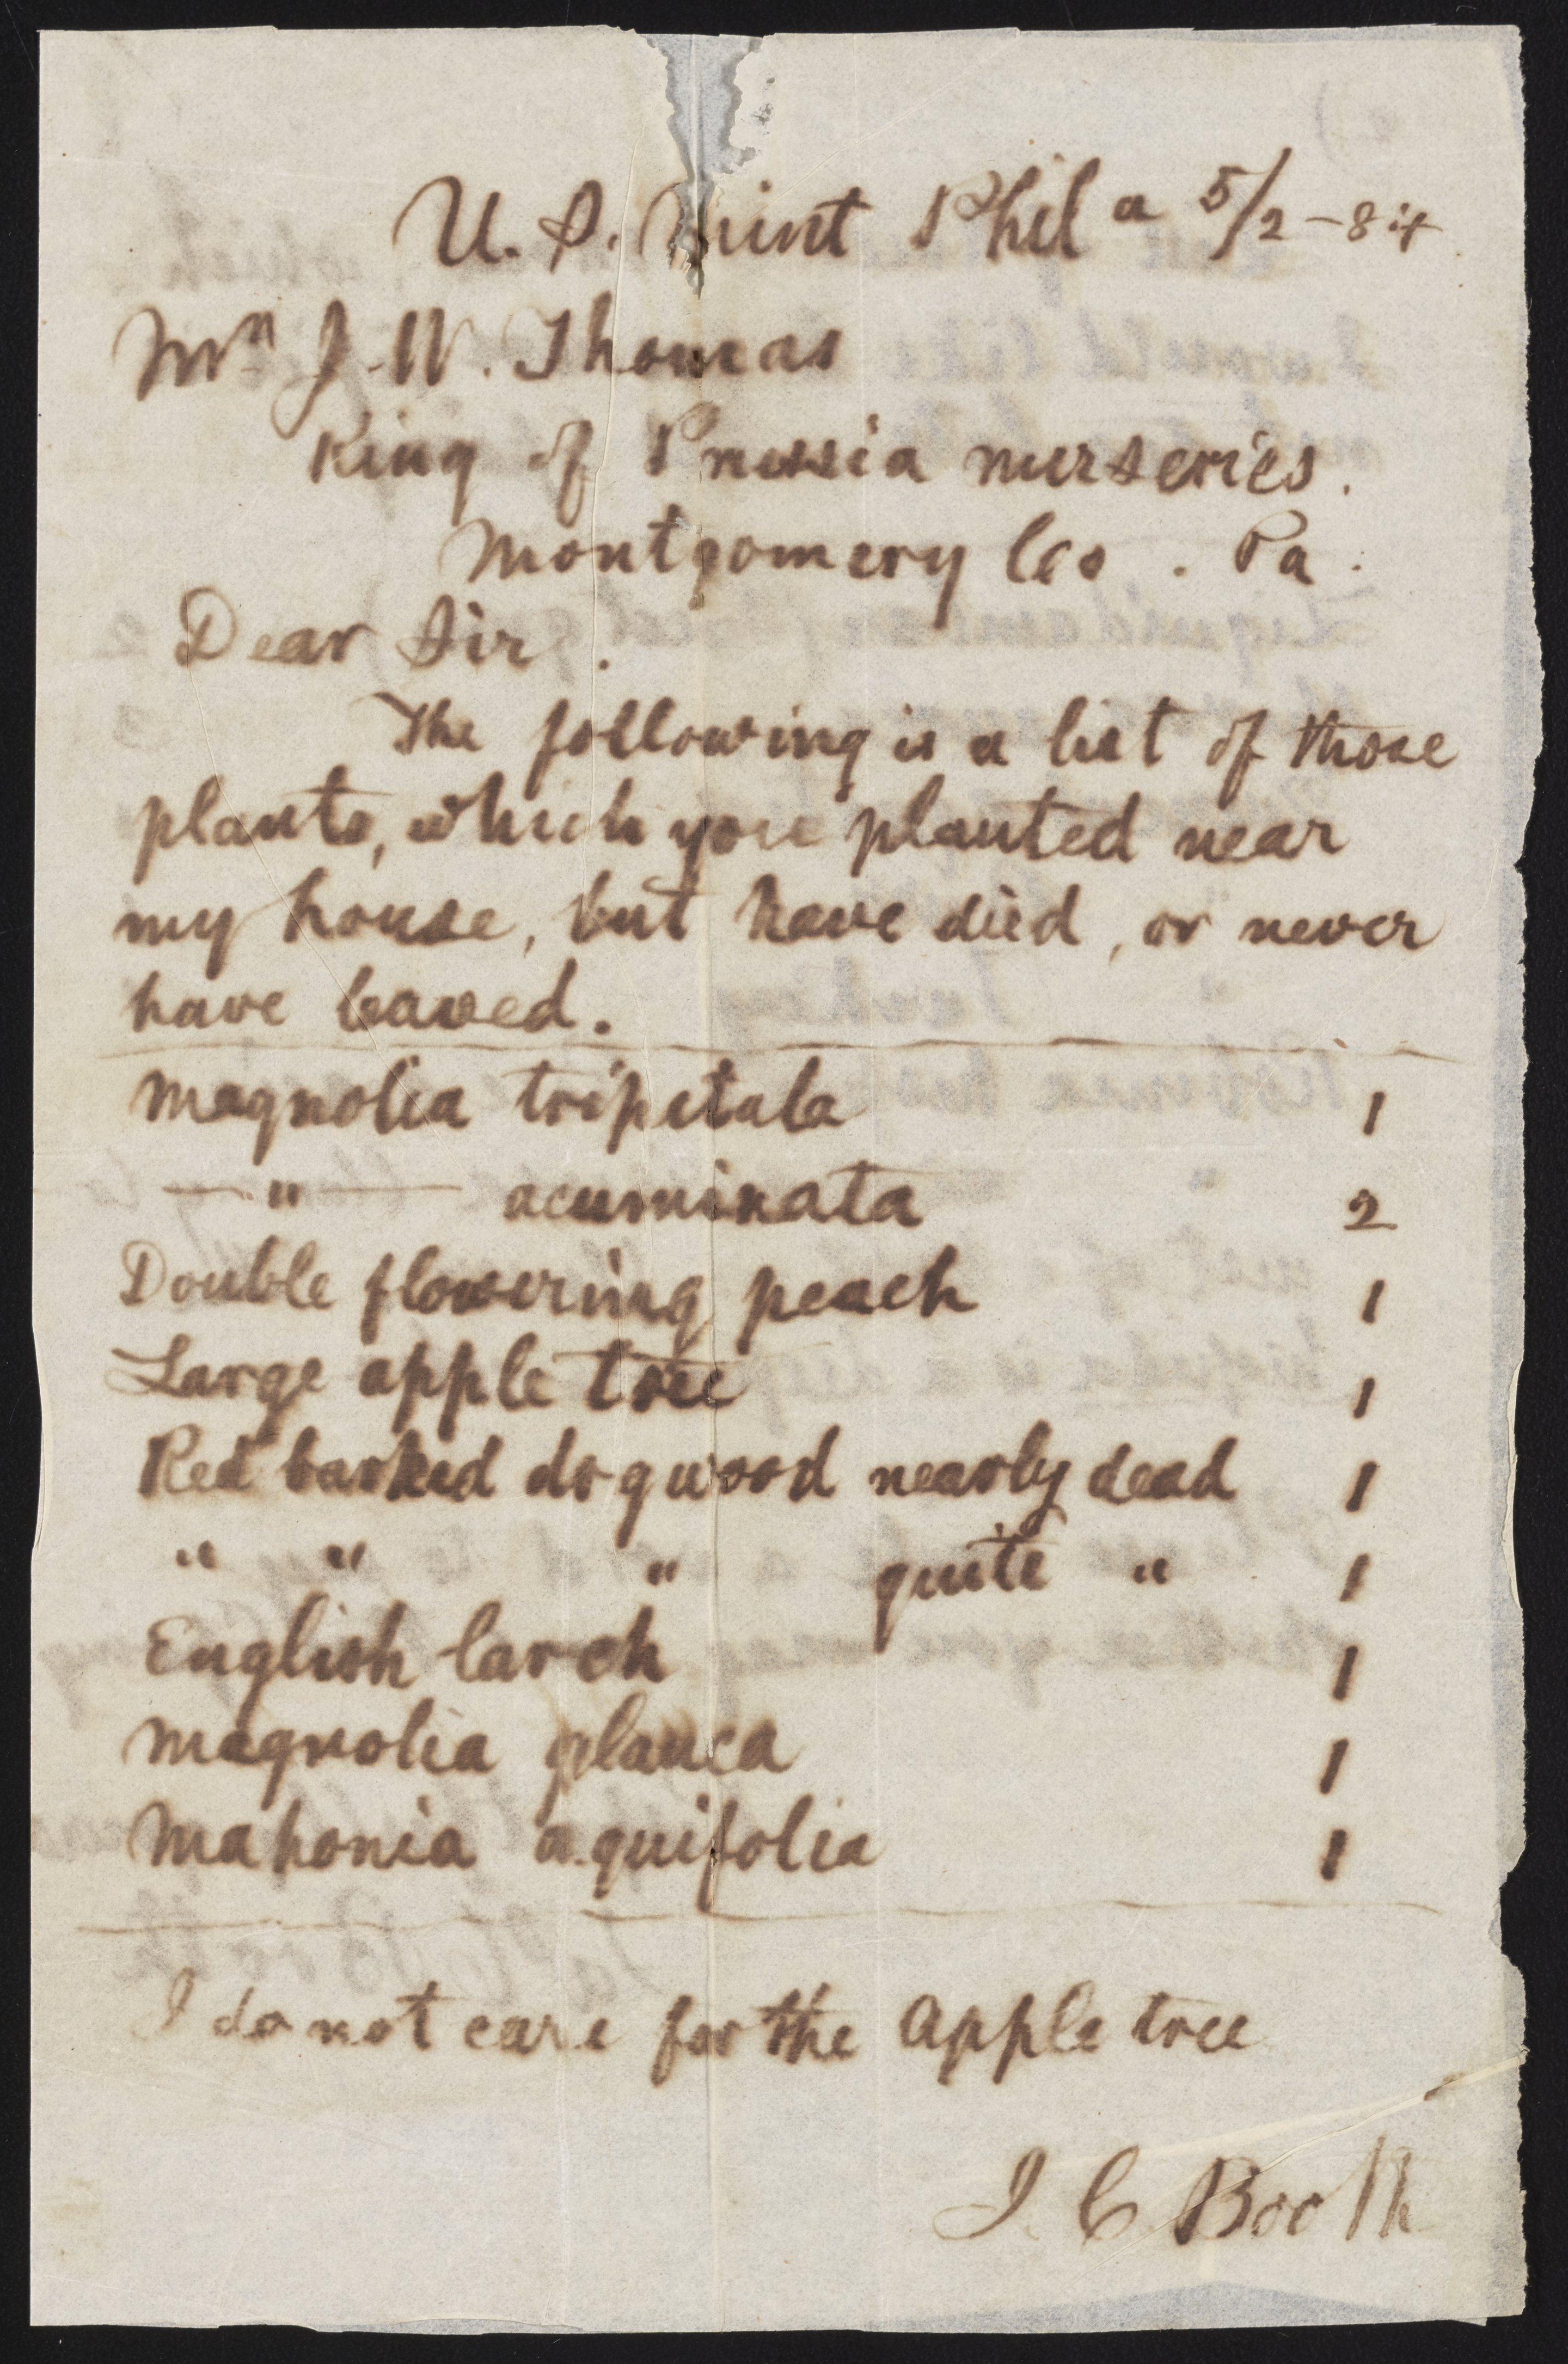 U. S. Mint Phila 5/2-84
Mr. J. W. Thomas
King of Prussia nurseries.
Montgomery Co. Pa.
Dear Sir.
The following is a list of those
plants, which you planted near
my house, but have died, or never
have leaved.
Magnolia tripetala 1
—"— acuminata 2
Double flowering peach 1
Large apple tree 1
Red barked dogwood nearly dead 1
" " " quite " 1
English larch 1
Magnolia glauca 1
Mahonia aquifolia 1
I do not care for the Apple tree
J. C. Booth